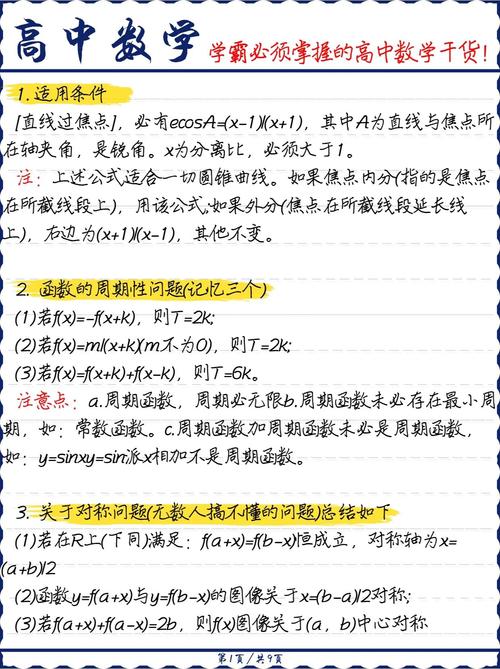 高中数学 学霸必须掌握的高中数学干货!
1.适用条件
[直线过焦点],必有ecosA=(x-1)/(x+1),其中A为直线与焦点所
在轴夹角,是锐角。x为分离比,必须大于1。
注:上述公式适合一切圆锥曲线。如果焦点内分(指的是焦点
在所截线段上),用该公式;如果外分(焦点在所截线段延长线
上),右边为(x+1)/(x-1),其他不变。
2. 函数的周期性问题(记忆三个)
(1)若f(x)=-f(x+k),则T=2k;
(2)若f(x)=m/(x+k)(m不为0),则T=2k;
(3)若f(x)=f(x+k)+f(x-k),则T=6k。
注意点:a.周期函数,周期必无限b.周期函数未必存在最小周
期,如:常数函数。c.周期函数加周期函数未必是周期函数,
如:y=sinxy=sin派x相加不是周期函数。
3. 关于对称问题(无数人搞不懂的问题)总结如下
(1)若在R上(下同)满足:f(a+x)=f(b-x)恒成立,对称轴为x=
(a+b)/2
(2)函数y=f(a+x)与y=f(b-x)的图像关于x=(b-a)/2对称;
(3)若f(a+x)+f(a-x)=2b,则f(x)图像关于(a,b)中心对称
第1页/共9页